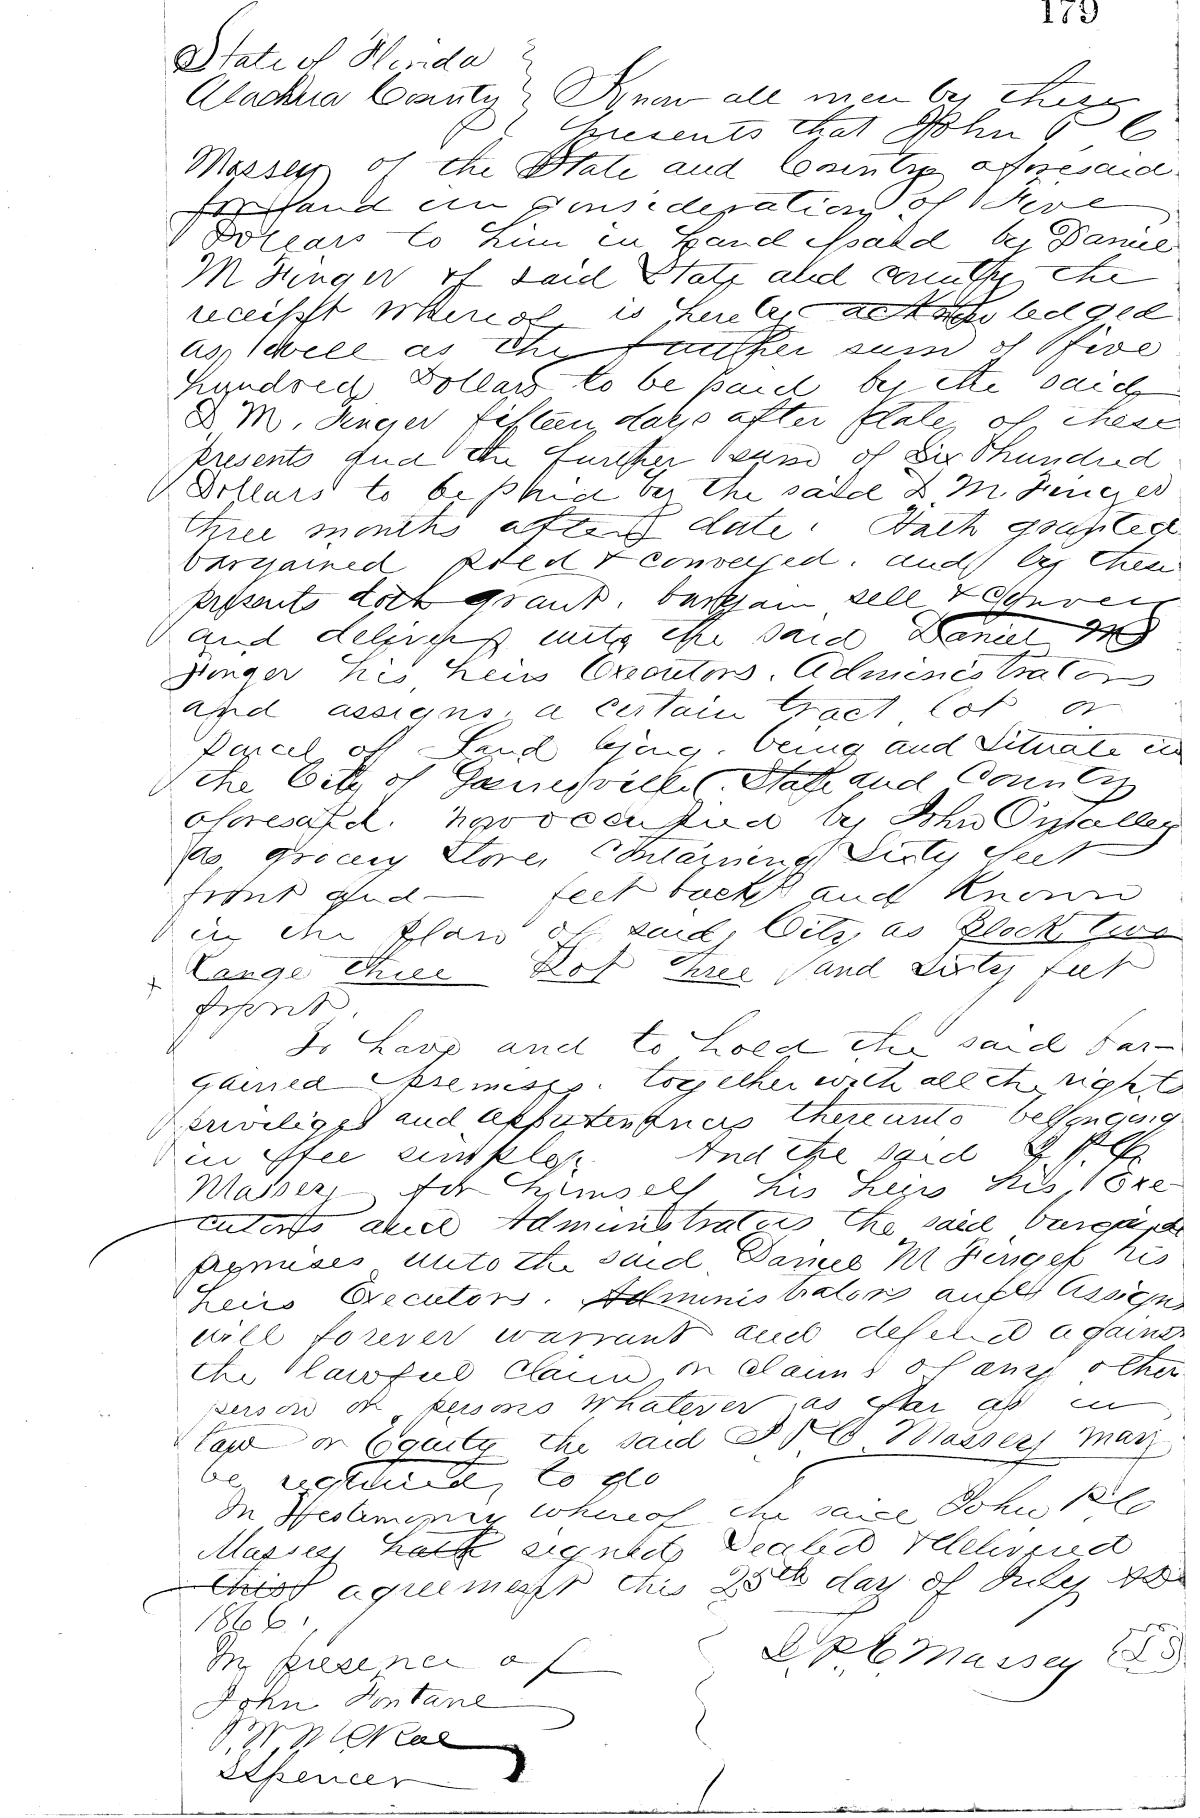 179
State of Florida
Alachua County Know all men by these
presents that John P C
Massey of the State and County aforesaid
for and in consideration of Five
Dollars to him in hand paid by Daniel
M Finger of said State and county the
receipt whereof is hereby acknowledged
as well as the further sum of five
hundred Dollars to be paid by the said
D M. Finger fifteen days after date of these
presents and the further sum of Six hundred
Dollars to be paid by the said D. M. Finger
three months after date. Hath granted
bargained sold & conveyed. and by these
presents doth grant. bargain sell & convey
and deliver unto the said Daniel M
Finger his heirs Executors. Administrators
and assigns. a certain tract lot or
parcel of Land lying. being and Situate in
the City of Gainesville. State and County
aforesaid. now occupied by John O'Malley
as grocery Store, Containing Sixty feet
front and — feet back and Known
in the plan of said City as Block two
Range three Lot three and Sixty feet
front.
To have and to hold the said bar-
gained premises. together with all the rights
priviliges and appurtenances thereunto belonging
in fee simple. And the said J. P. C.
Massey for himself his heirs his Exe
cutors and Administrators the said bargained
premises unto the said Daniel M Finger his
heirs Executors. Administrators and Assigns
will forever warrant and defend against
the lawful Claim or claims of any other
person or persons whatever as far as in
law or Equity the said J P C. Massey may
be required to do
In Testimony whereof the said John P C
Massey hath signed Sealed & delivered
this agreement this 25th day of July AD
1866.
In presence of J. P. C. Massey LS
John Fontane
McNeal
Spencer